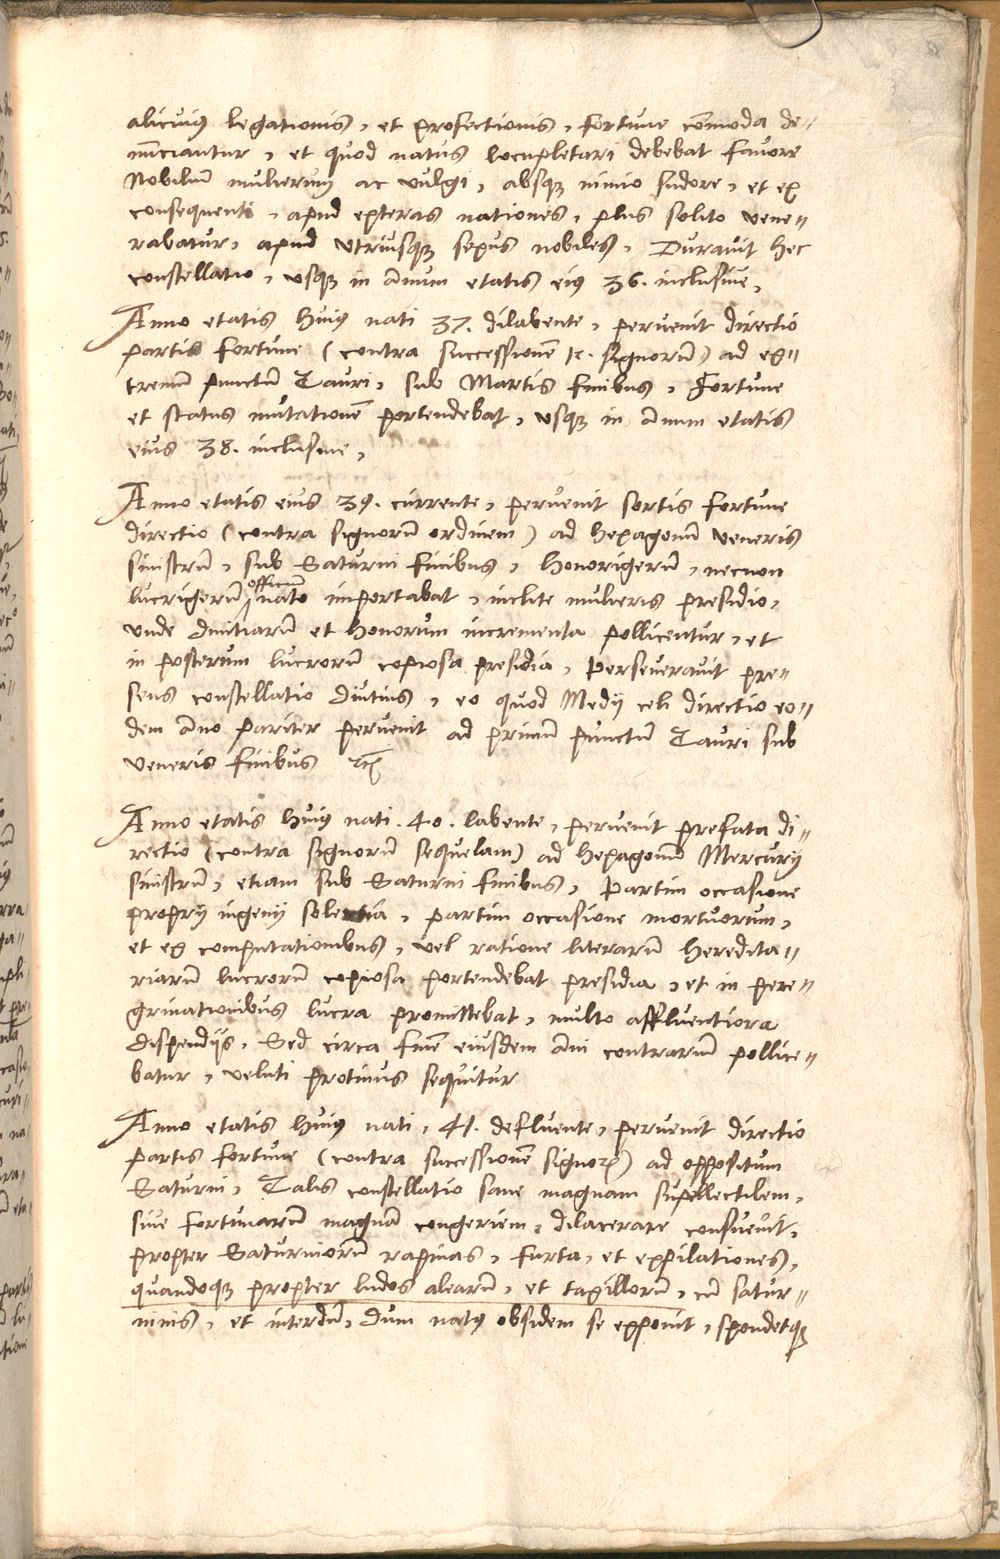 alicuius legationis, et profectionis, fortune cõmoda de-
nũciantur, et quod natus locupletari debebat favore
Nobiliũ mulierum ac vulgi, absqꝫ nimio sudore, et ex
consequenti, apud exteras nationes, plus solito vene-
rabatur, apud utriusqꝫ sexus nobiles, Duravit hec
constellatio, usqꝫ in Annum etatis eius 36. inclusive,
Anno etatis huius nati 37. dilabente, pervenit directio
partis fortune (contra successionẽ 12. signorũ) ad ex-
tremũ punctũ Tauri, sub Martis finibus, Fortune
et status mutationẽ portendebat, usqꝫ in Annum etatis
eius 38. inclusive,
Anno etatis eius 39. currente, pervenit sortis fortune
directio (contra signorũ ordinem) ad hexagonũ Veneris
sinistrũ, sub Saturni finibus, honorigerũ, necnon
lucrigerũ officiũ nato importabat, inclite mulieris presidio,
Unde divitiarũ et honorum incrementa pollicentur, et
in posterum lucrorũ copiosa presidia, Perseveravit pre-
sens constellatio diutius, eo quod Medij celi directio eo-
dem Anno pariter pervenit ad primũ punctũ Tauri sub
Veneris finibus
Anno etatis huius nati .40. labente, pervenit prefata di-
rectio (contra signorũ sequelam) ad hexagonũ Mercurij
sinistrũ, etiam sub Saturni finibus, Partim occasione
proprij ingenij solertia, partim occasione mortuorum,
et ex computationibus, vel ratione literarũ heredita-
riarũ lucrorũ copiosa portendebat presidia, et in pere-
grinationibus lucra promittebat, multo affluentiora
dispendijs, Sed circa finẽ eiusdem Ani contrariũ pollice-
batur, veluti protinus sequitur
Anno etatis huius nati, 41. defluente, pervenit directio
partis fortune (contra successionẽ signorꝫ) ad oppositum
Saturni, Talis constellatio sane magnam supellectilem,
sive fortunarũ magnã congeriem, dilacerare consuevit,
propter Saturniorũ rapinas, furta, et expilationes,
quandoqꝫ propter ludos alearũ, et taxillorũ, cũ satur-
ninis, et interdũ, dum natus obsidem se exponit, spondetqꝫ